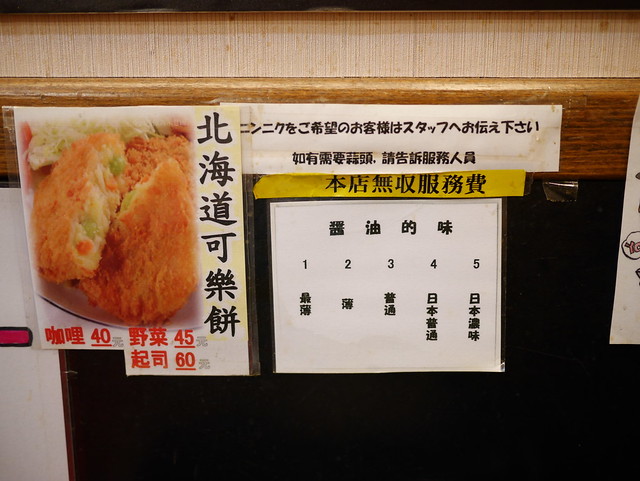 北海道可樂餅
咖哩 40元 野菜 45元
起司 60元
ニンニクをご希望のお客様はスタッフへお伝え下さい
如有需要蒜頭,請告訴服務人員
本店無収服務費
醬油的味
1 2 3 4 5
最薄 薄 普通 日本普通 日本濃味